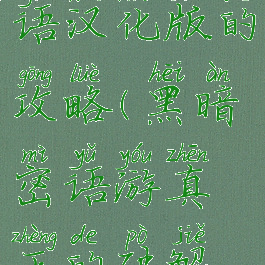 语汉化版的
gōng lüè hēi àn
攻略(黑暗
mì yǔ yóu zhēn
密语游真
zhèng de pò jiě
正的破解